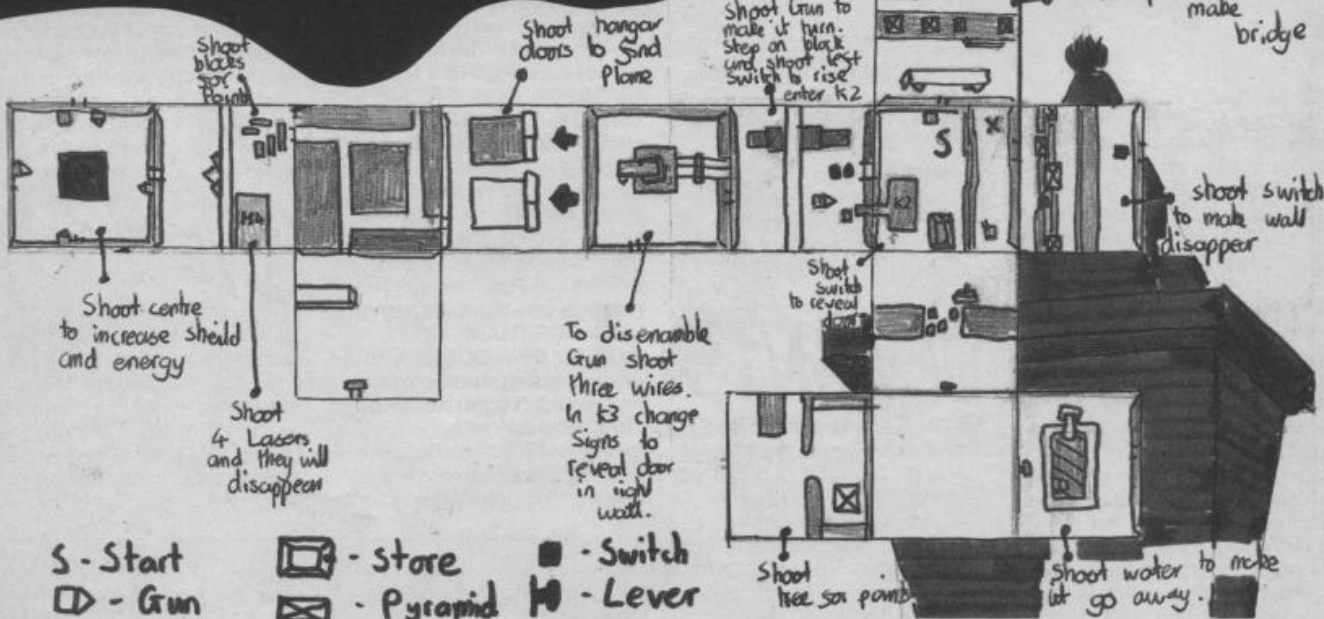 make
bridge
Shoot
blocks
for
Points
Shoot hangar
doors to find
Plane
Shoot Gun to
make it turn.
Step on block
and shoot left
switch to rise
enter K2
S
K2
shoot switch
to make wall
disappear
Shoot
switch
to reveal
door
Shoot centre
to increase sheild
and energy
Shoot
4 Lasers
and they will
disappear
To disenamble
Gun shoot
three wires.
In K3 change
Signs to
reveal door
in right
wall.
Shoot
tree for points
Shoot water to make
it go away.
S - Start
- Gun
- Store
- Pyramid
- Switch
- Lever